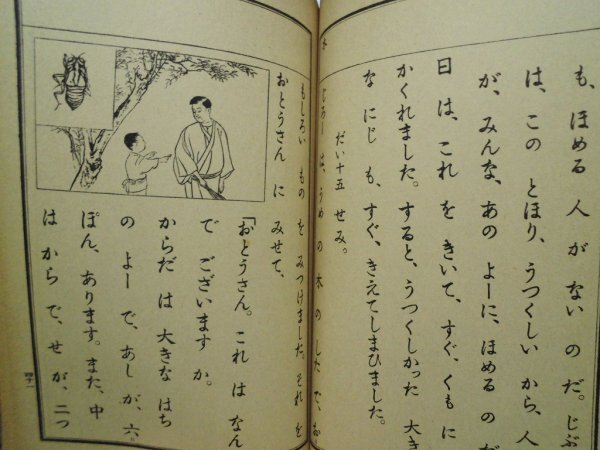 も、ほめる 人 が ない の だ。じぶ
は、この とほり、うつくしい から、人
が、みんな、あの よーに、ほめる の だ
日 は、これ を きいて、すぐ、くも に
かくれました。すると、うつくしかった 大き
な にじ も、すぐ、きえてしまひました。
だい十五 せみ。
じろーは、うめ の 木 の した で、お
もしろい もの を みつけました。それ を
おとうさん に みせて、
「おとうさん。これ は なん
で ございます か。
からだ は 大きな はち
の よー で、あし が、六
ぽん、あります。また、中
は から で、せ が、二つ
四十一